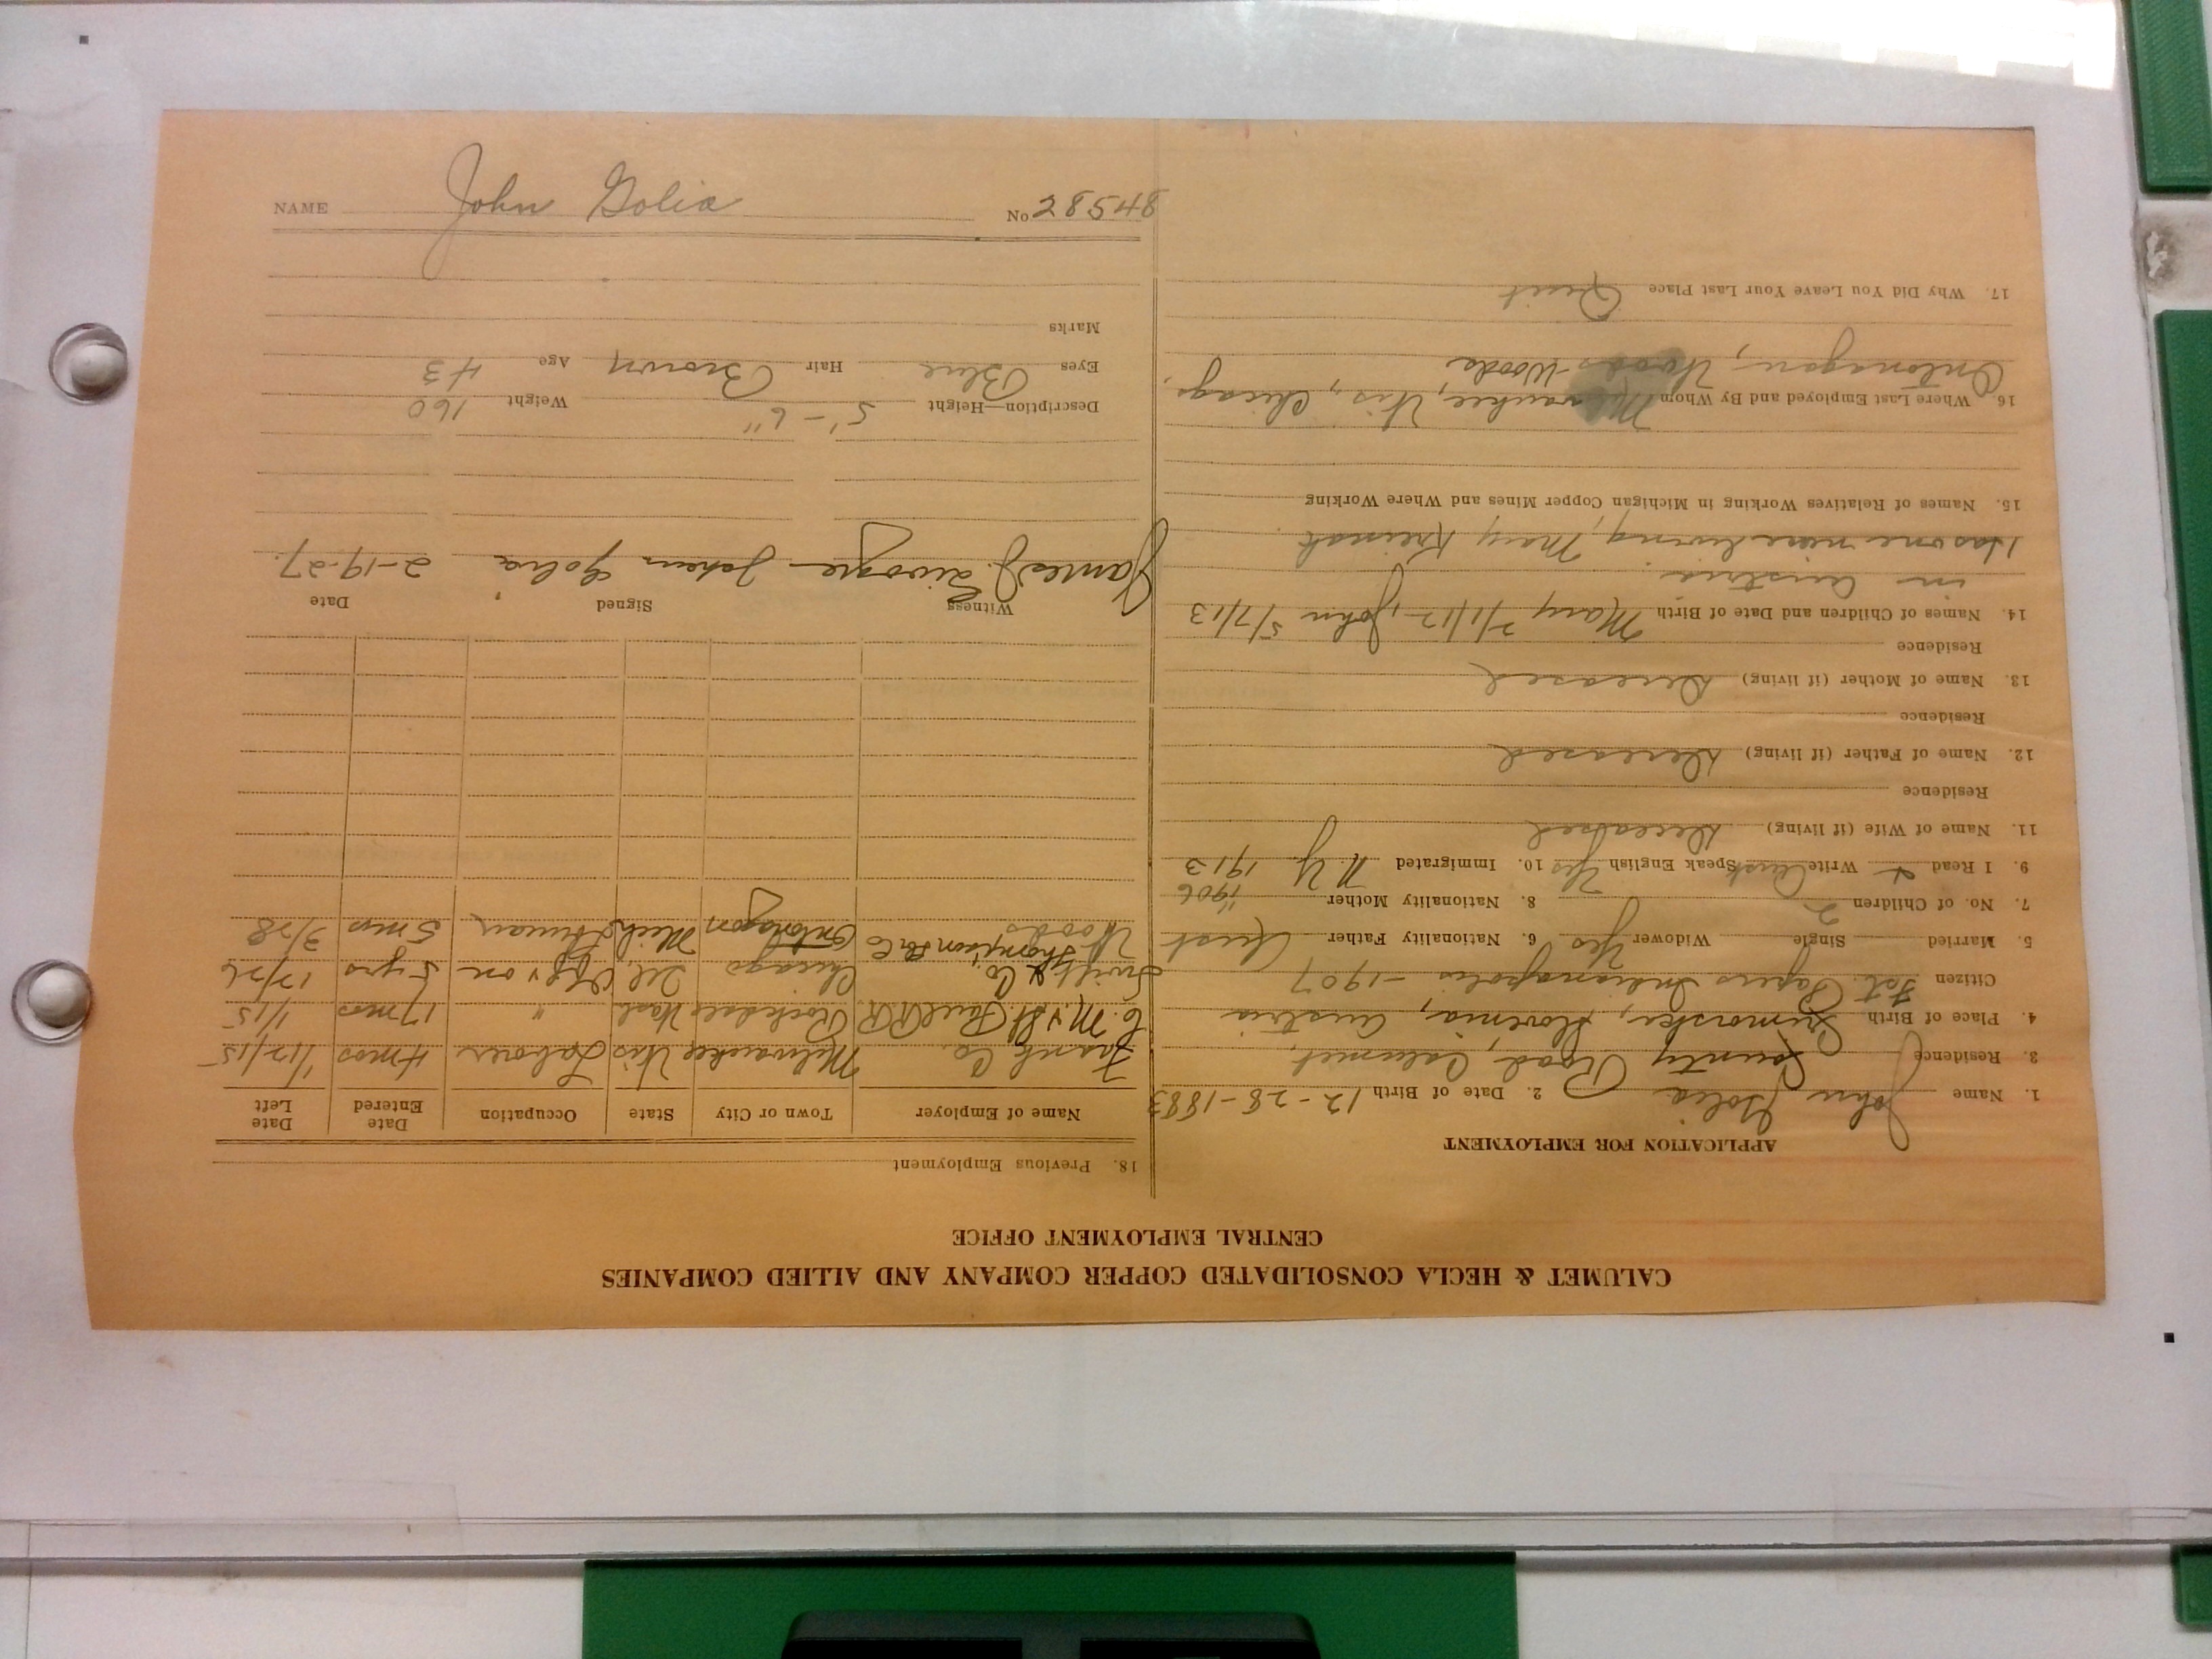 CALUMET & HECLA CONSOLIDATED COPPER COMPANY AND ALLIED COMPANIES
CENTRAL EMPLOYMENT OFFICE
APPLICATION FOR EMPLOYMENT
1. Name John Golia 2. Date of Birth 12-28-1883
3. Residence County Road, Calumet.
4. Place of Birth Slovenia, Austria
Citizen 1st. Papers Indianapolis - 1907
5. Married Single Widower Yes 6. Nationality Father Aust
7. No. of Children 2 8. Nationality Mother "
1906
9. I Read & Write Aust Speak English Yes 10. Immigrated N.Y. 1913
11. Name of Wife (if living) Deceased
Residence
12. Name of Father (if living) Deceased
Residence
13. Name of Mother (if living) Deceased
Residence
14. Names of Children and Date of Birth Mary 2/1/12, John 5/7/13
in Austria.
Has one niece living, Mary
15. Names of Relatives Working in Michigan Copper Mines and Where Working
16. Where Last Employed and By Whom Milwaukee, Wis, Chicago,
Ontonagon, Woods-Woods
17. Why Did You Leave Your Last Place Quit
18. Previous Employment
Name of Employer Town or City State Occupation Date Entered Date Left
Frank Co. Milwaukee Wis Laborer 4 mos 1/12/15
C. M. & St. Paul RR Rockdale Wash " 17 mos 1/15
Swift & Co. Chicago Ill. 5 yrs 12/26
Thompson Lbr Co
Woods Ontonagon Mich 5 mos 2/28
Witness Signed Date
James J. Johan Golia 2-19-27.
Description—Height 5'-6" Weight 160
Eyes Blue Hair Brown Age 43
Marks
NAME John Golia No 28548